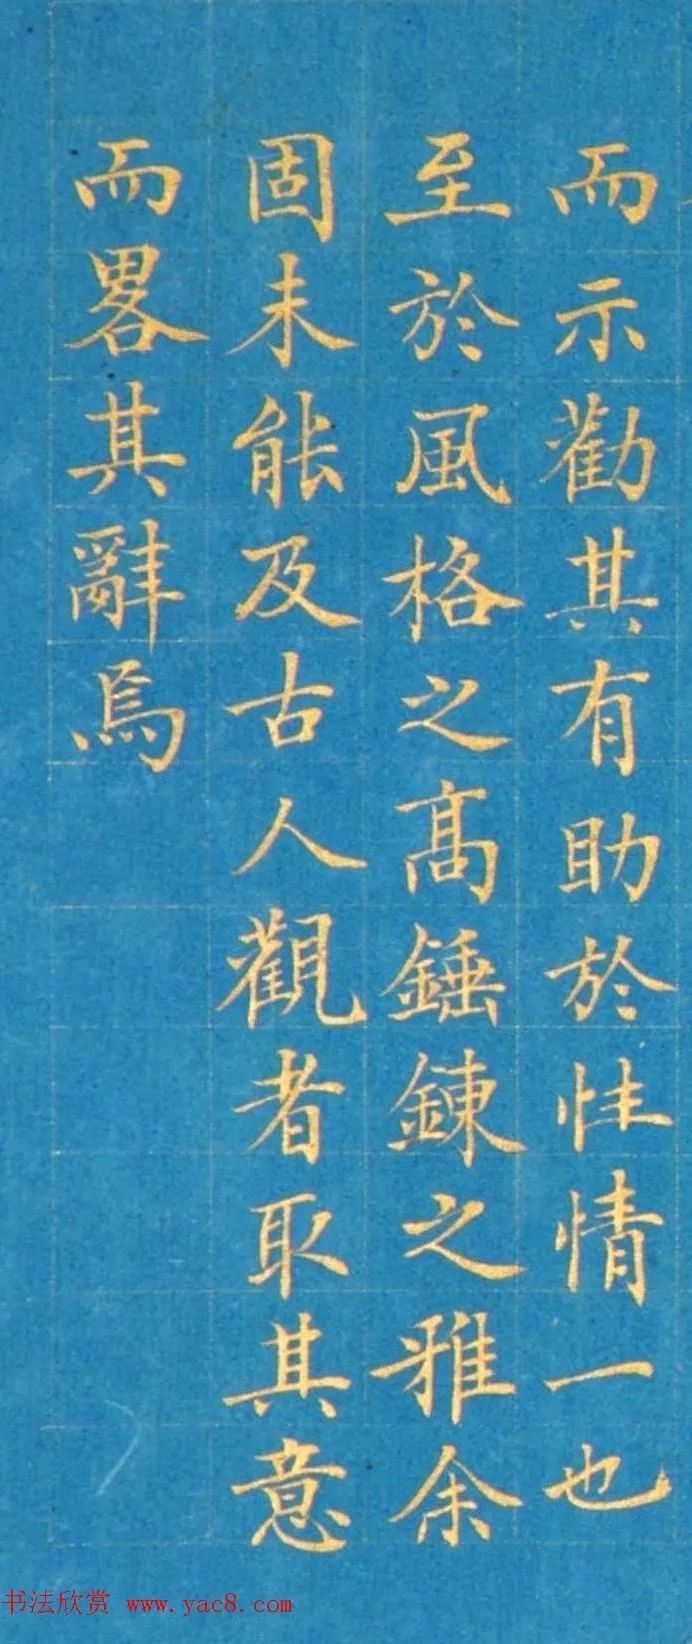 而示勸其有助於性情一也
至於風格之高錘鍊之雅余
固未能及古人觀者取其意
而畧其辭焉
书法欣赏 www.yac8.com